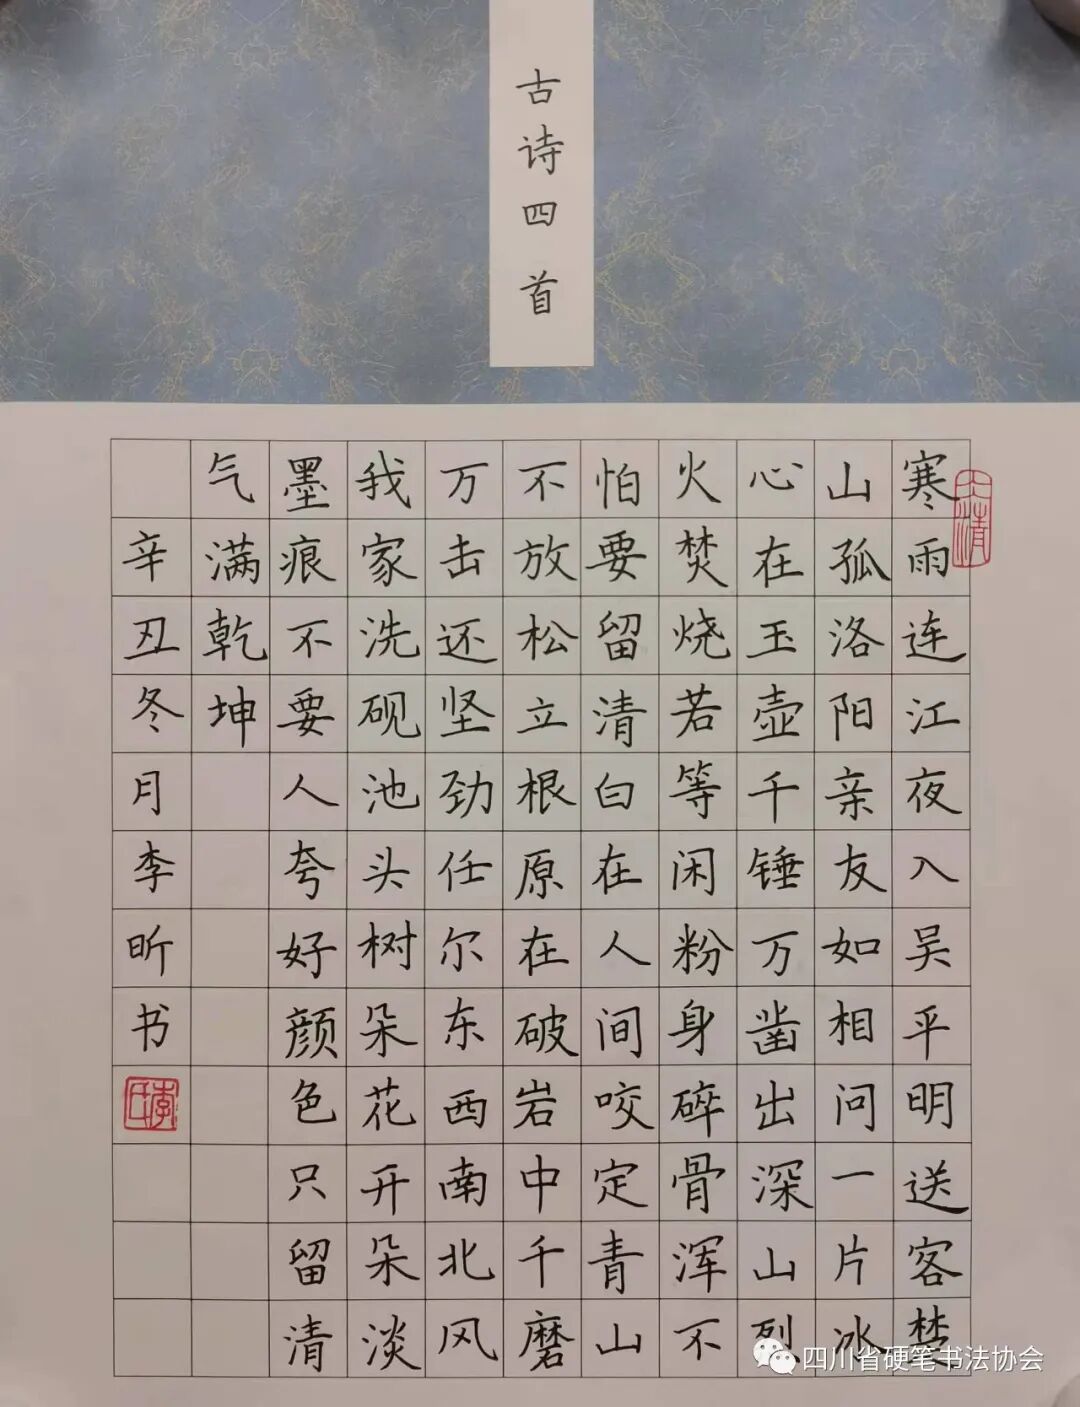 古诗四首
寒雨连江夜入吴平明送客楚
山孤洛阳亲友如相问一片冰
心在玉壶千锤万凿出深山烈
火焚烧若等闲粉身碎骨浑不
怕要留清白在人间咬定青山
不放松立根原在破岩中千磨
万击还坚劲任尔东西南北风
我家洗砚池头树朵花开朵淡
墨痕不要人夸好颜色只留清
气满乾坤
辛丑冬月李昕书
四川省硬笔书法协会